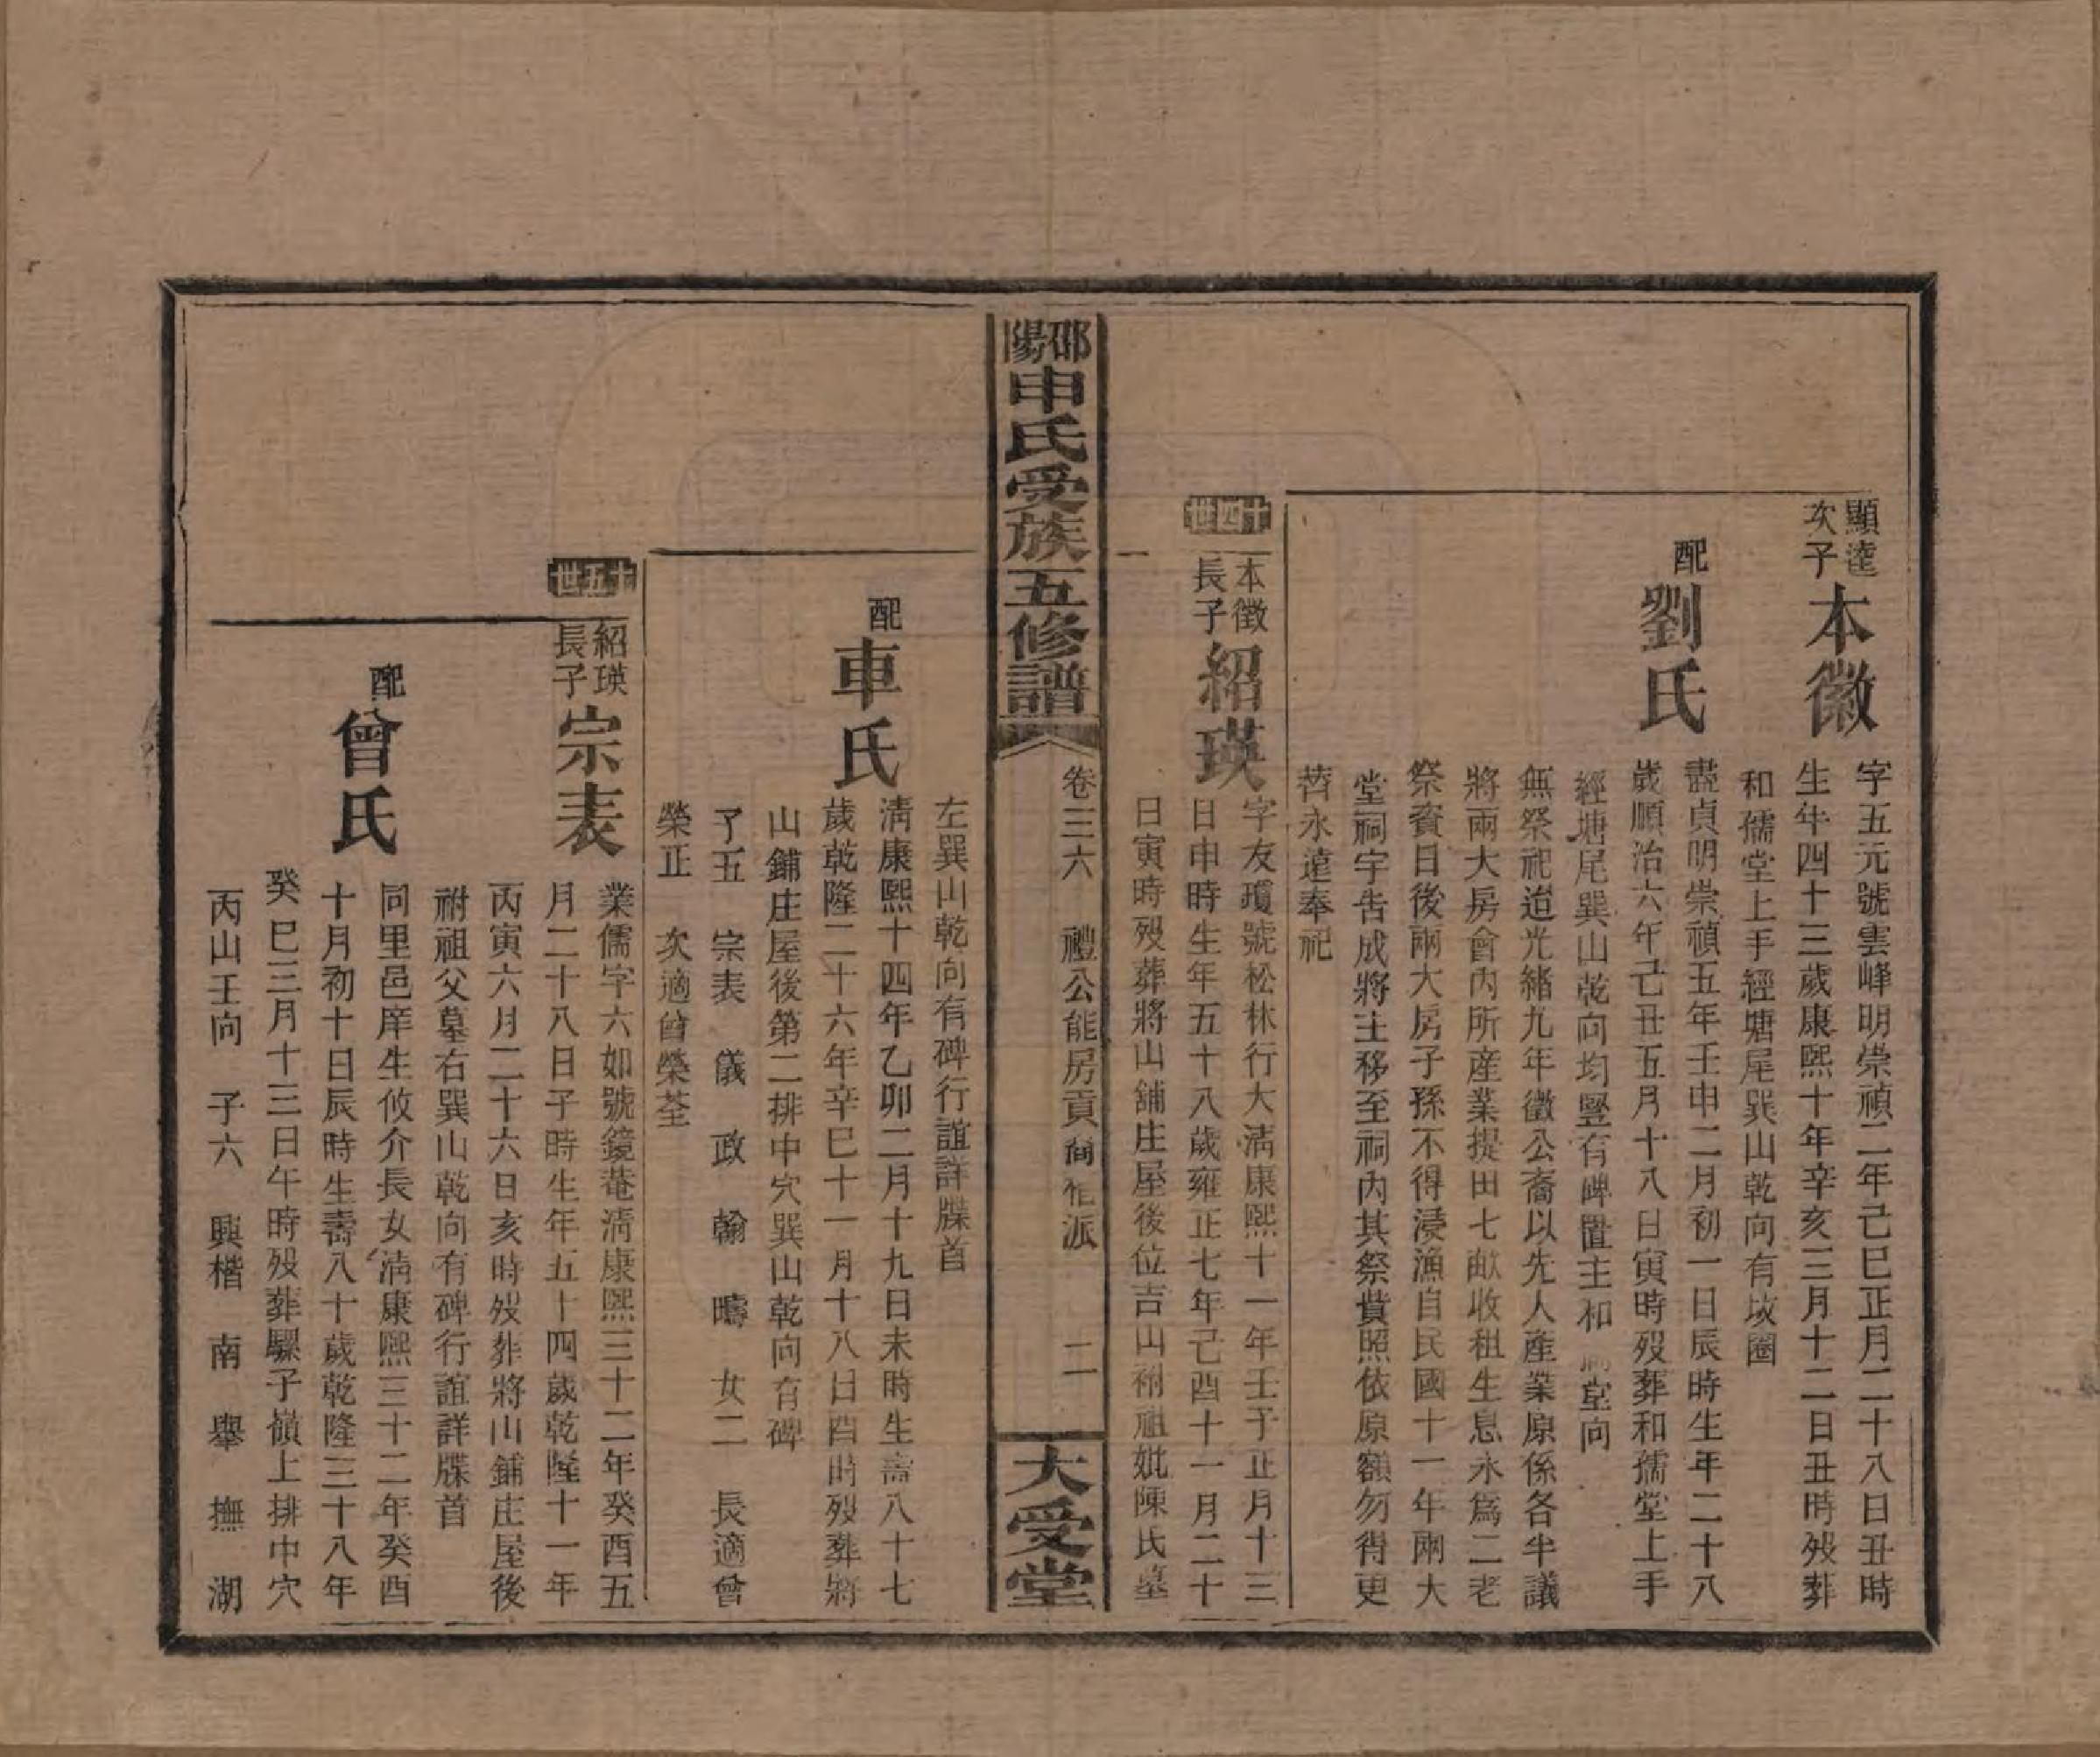 顯達
次子
本徽
字五元號雲峰明崇禎二年己巳正月二十八日丑時
生年四十三歲康熙十年辛亥三月十二日丑時歿葬
和儒堂上手經塘尾巽山乾向有坡圈
配
劉氏
諡貞明崇禎五年壬申二月初一日辰時生年二十八
歲順治六年己丑五月十八日寅時歿葬和孺堂上手
經塘尾巽山乾向均豎有碑置主和 堂向
無祭祀迨光緒九年徽公裔以先人產業原係各半議
將兩大房會內所產業提田七畝收租生息永為二老
祭資日後兩大房子孫不得浸漁自民國十一年兩大
堂祠宇告成將主移至祠內其祭費照依原額勿得更
替永遠奉祀
十四世
本徵
長子
紹瑛
字友瓊號松林行大清康熙十一年壬子正月十三
日申時生年五十八歲雍正七年己酉十一月二十
日寅時歿葬將山舖庄屋後位吉山祔祖妣陳氏墓
邵陽申氏受族五修譜
卷三六 禮公能房貢 派 二
大受堂
左巽山乾向有碑行誼詳牒首
配
車氏
清康熙十四年乙卯二月十九日未時生壽八十七
歲乾隆二十六年辛巳十一月十八日酉時歿葬將
山鋪庄屋後第二排中穴巽山乾向有碑
子五 宗表 儀 政 翰 疇 女二 長適曾
榮正 次適曾榮荃
十五世
紹瑛
長子
宗表
業儒字六如號鏡菴清康熙三十二年癸酉五
月二十八日子時生年五十四歲乾隆十一年
丙寅六月二十六日亥時歿葬將山鋪庄屋後
祔祖父墓右巽山乾向有碑行誼詳牒首
配
曾氏
同里邑庠生攸介長女清康熙三十二年癸酉
十月初十日辰時生壽八十歲乾隆三十八年
癸巳三月十三日午時歿葬騾子嶺上排中穴
丙山壬向 子六 興楷 南 舉 撫 湖